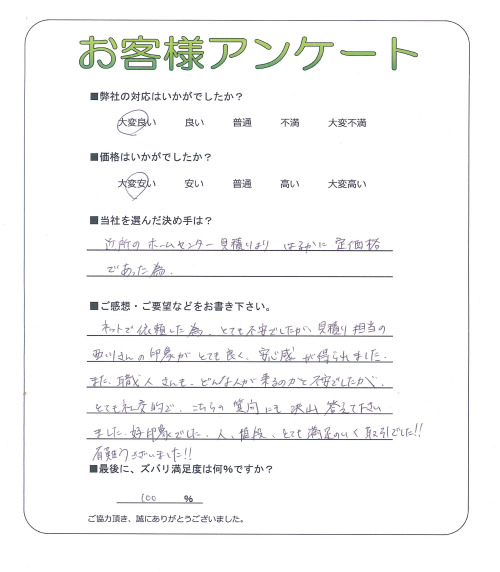 お客様アンケート
■弊社の対応はいかがでしたか？
大変良い 良い 普通 不満 大変不満
■価格はいかがでしたか？
大変安い 安い 普通 高い 大変高い
■当社を選んだ決め手は？
近所のホームセンター見積りより はるかに 定価格
であった為.
■ご感想・ご要望などをお書き下さい。
ネットで依頼した為、とても不安でしたが、見積り担当の
西川さんの印象がとても良く、安心感が得られました.
また、職人さんも、どんな人が来るのかと不安でしたが、
とても社交的で、こちらの質問にも沢山答えて下さい
ました.好印象でした.人、値段、とても満足のいく取引でした!!
有難うございました!!
■最後に、ズバリ満足度は何%ですか？
100 %
ご協力頂き、誠にありがとうございました。